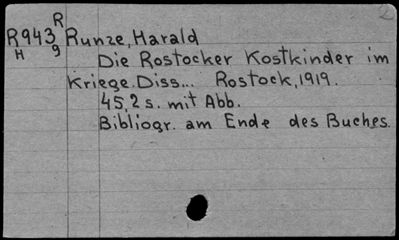 2
R943 R Runze, Harald
H 9
Die Rostocker Kostkinder im
Kriege. Diss... Rostock, 1919.
45,2 s. mit Abb.
Bibliogr. am Ende des Buches.